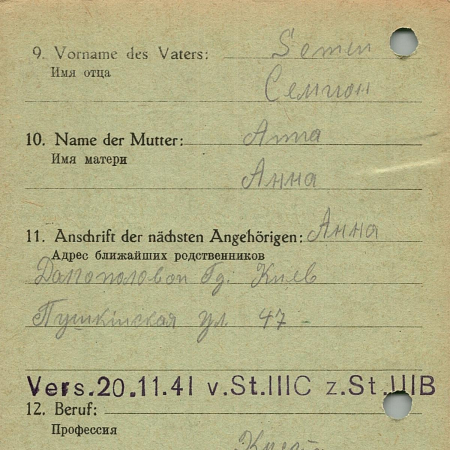 9. Vorname des Vaters: Semen
Имя отца
Семион
10. Name der Mutter: Anna
Имя матери
Анна
11. Anschrift der nächsten Angehörigen: Анна
Адрес ближайших родственников
Гд. Киев
Пушкінская ул. 47 -
Vers.20.11.41 v.St.IIIC z.St.IIIB
12. Beruf:
Профессия